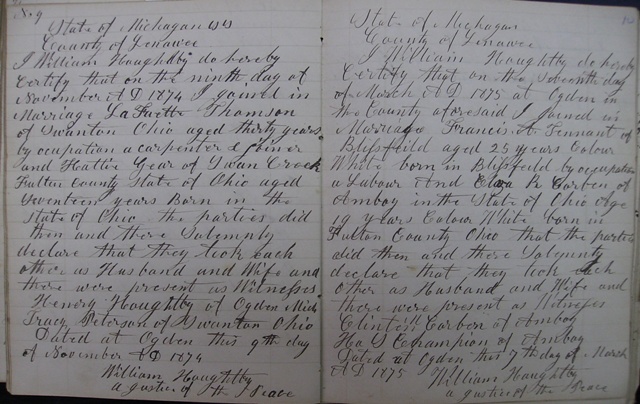 No 9
State of Michagan ss
County of Lenawee
I William Houghtby do hereby
Certify that on the ninth day of
November A D 1874 I joined in
Marriage LaFaette Thomson
of Swanton Ohio aged thirty years
by ocupation a carpenter & joiner
and Hattie Gear of Swan Creek
Fulton County State of Ohio aged
Seventeen years Born in the
State of Ohio the parties did
then and there Solemnly
declare that they took each
other as Husband and Wife and
there were present as Witnesses
Henery Houghtby of Ogden Mich
Tracy Peterson of Swanton Ohio
Dated at Ogden this 9th day
of November A D 1874
William Houghtby
a Justice of the Peace
State of Michagan
County of Lenawee
I William Houghtby do hereby
Certify that on the Seventh day
of March A D 1875 at Ogden in
the County aforesaid I joined in
Marriage Francis A Tennant of
Blissfeild aged 25 years Colour
White born in Blissfeild by ocupation
a Labour And R Corben of
Amboy in the State of Ohio age
19 years Colour White born in
Fulton County Ohio that the parties
did then and there Solemnly
declare that they took each
Other as Husband and Wife and
there were present as Witnesses
Clinten Corben of Amboy
Champion of Amboy
Dated at Ogden this 7th day of March
A D 1875 William Houghtby
a Justice of the Peace